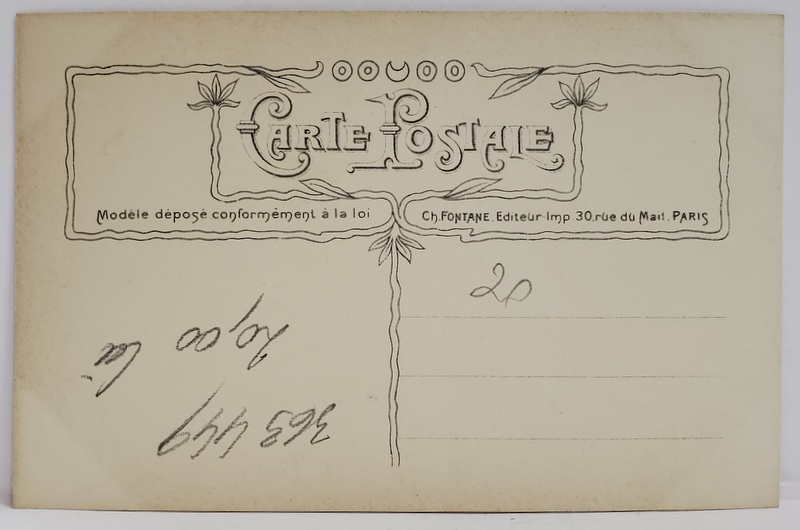 CARTE POSTALE
Modèle déposé conformément à la loi
Ch. FONTANE, Editeur-Imp. 30, rue du Mail. PARIS
20
20,00 lei
363 449